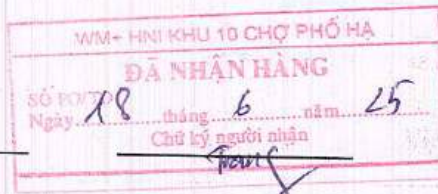 WM+ HNI KHU 10 CHỢ PHỐ HẠ
ĐÃ NHẬN HÀNG
SỐ PO/TO
Ngày 18 tháng 6 năm 25
Chữ ký người nhận
Trang